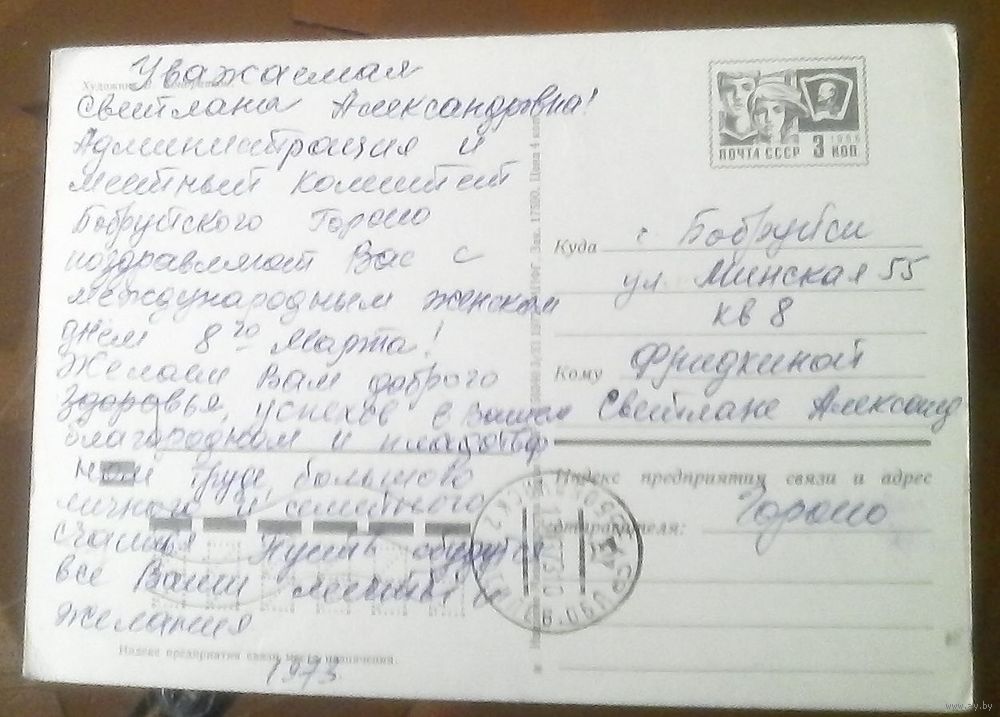 Уважаемая
Светлана Александровна!
Администрация и
местный комитет
Бобруйского Гороно
поздравляют Вас с
международным женским
днём 8го Марта!
Желаем Вам доброго
здоровья, успехов в вашем
благородном и плодотвор
ном труде, большого
личного и семейного
счастья Пусть сбудутся
все Ваши мечты и
желания
1973
Индекс предприятия связи места назначения.
ПОЧТА СССР 3 КОП
1966
Куда г. Бобруйск
ул. Минская 55
кв 8
Кому Фридкиной
Светлане Александ
Индекс предприятия связи и адрес
отправителя: Гороно
www.ay.by